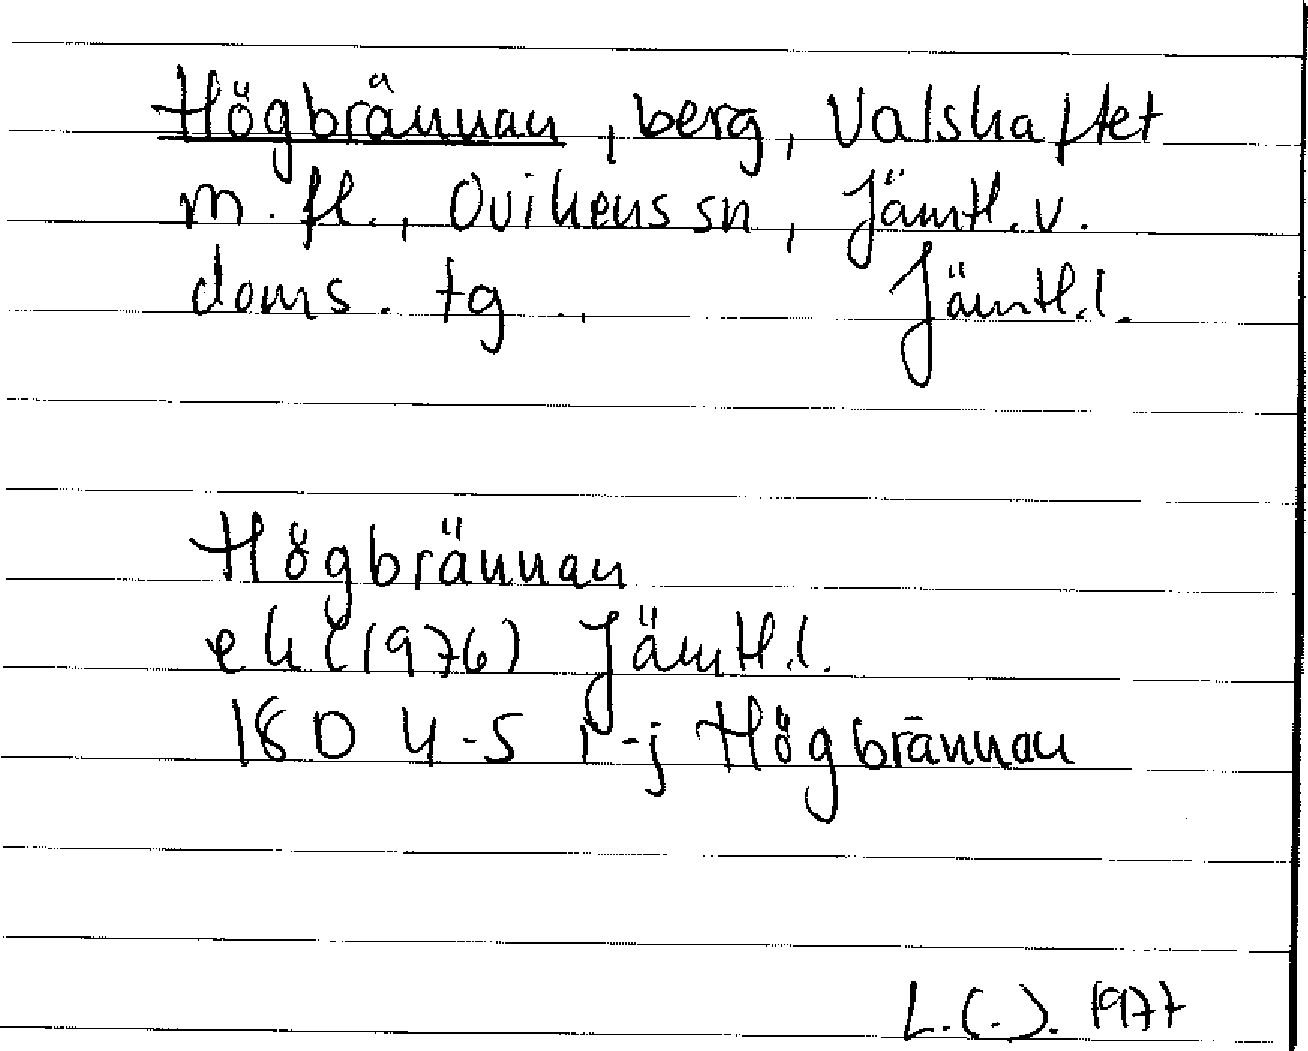 Högbrännan, berg, Valskaftet
m. fl., Ovikens sn, Jämtl. v.
doms. tg., Jämtl. l.
Högbrännan
ek (1976) Jämtl. l.
18D 4-5 i-j Högbrännan
L.C.J. 1977